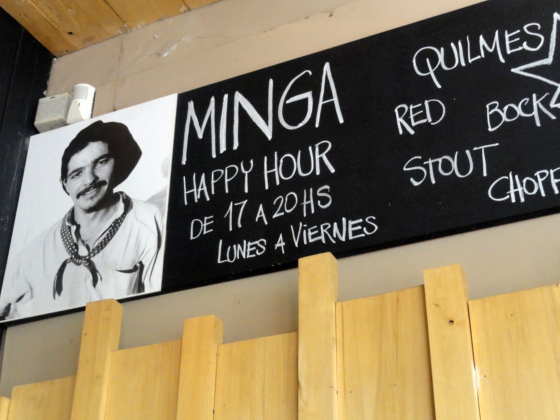 MINGA
HAPPY HOUR
DE 17 A 20 HS
LUNES A VIERNES
QUILMES
RED BOCK
STOUT
CHOPP